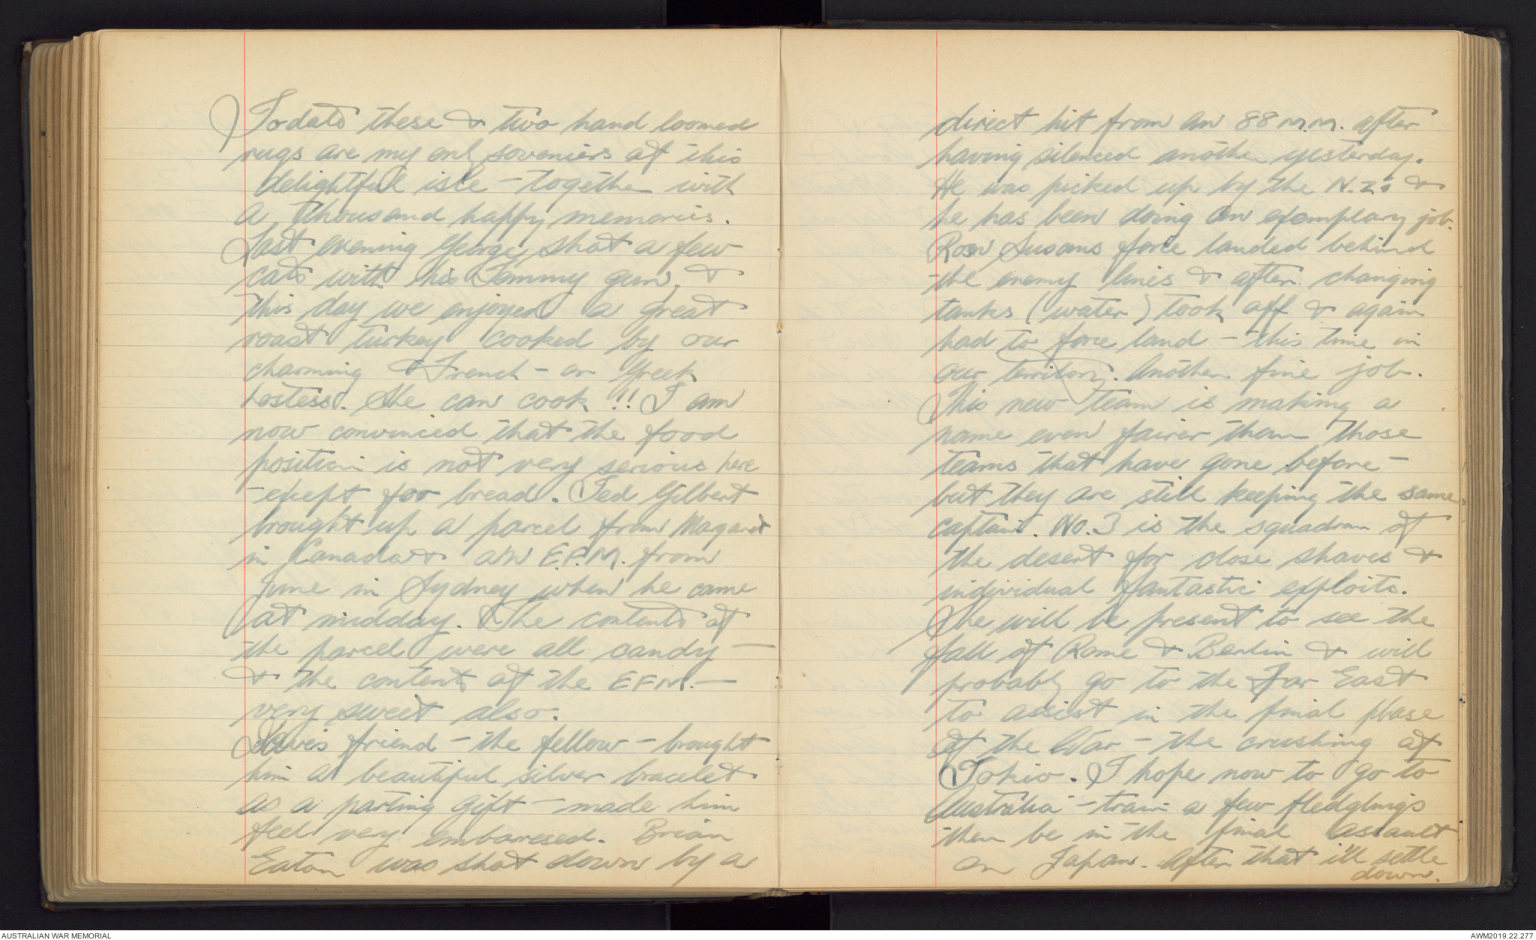 To date these & two hand loomed
rugs are my only soveniers of this
delightful isle - together with
a thousand happy memories.
Last evening George shot a few
cats with his Tommy gun, &
this day we enjoyed a great
roast turkey cooked by our
charming & French - or Greek
hostess. She can cook!! I am
now convinced that the food
position is not very serious here
- except for bread. Ted Gilbert
brought up a parcel from Magaret
in Canada & an E.F.M. from
June in Sydney when he came
at midday. The contents of
the parcel were all candy -
& the contents of the EFM. -
very sweet also.
friend - the fellow - brought
him a beautiful silver bracelet
as a parting gift - made him
feel very embaresed. Brian
Eaton was shot down by a
direct hit from an 88 m.m. after
having silenced another yesterday.
He was picked up by the N.Z's &
he has been doing an exemplary job.
Ron Susans force landed behind
the enemy lines & after changing
tanks (water) took off & again
had to force land - this time in
our territory. Another fine job.
This new team is making a
name even fairer than those
teams that have gone before -
but they are still keeping the same
captain. No. 3 is the squadron of
the desert for close shaves &
individual fantastic exploits.
She will be present to see the
fall of Rome & Berlin & will
probably go to the Far East
to assist in the final phase
of the War - the crushing of
Tokio. I hope now to go to
Australia - train a few fledglings
then be in the final assault
on Japan. After that i'll settle
down.
AUSTRALIAN WAR MEMORIAL
AWM2019.22.277